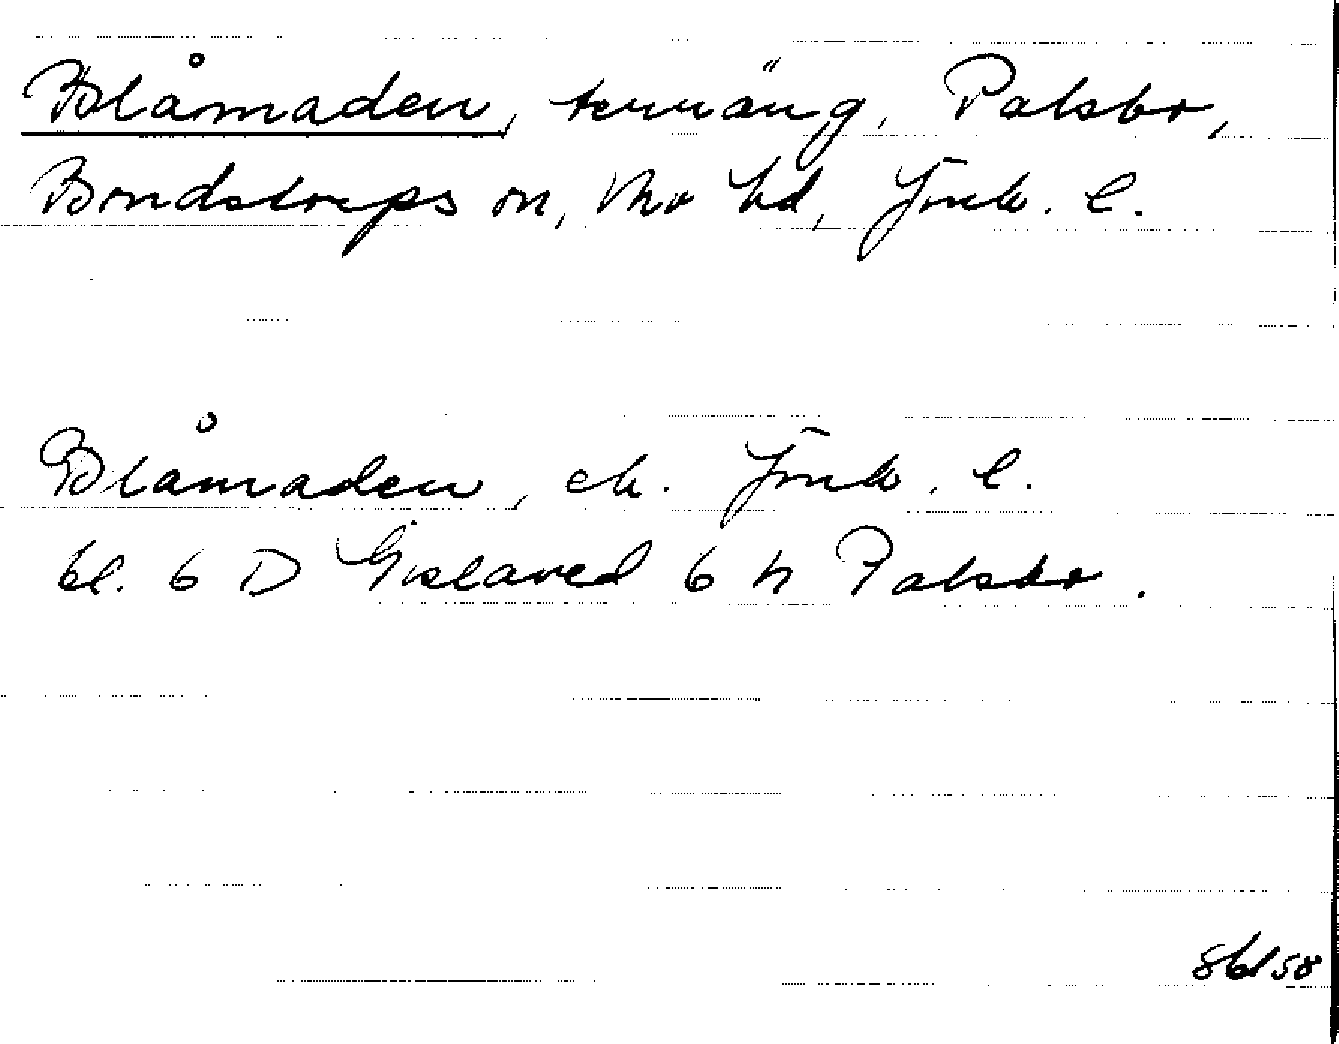 Blåmaden, terräng, Palsbo,
Bondstorps sn, Mo hd, Jönk. l.
Blåmaden, ek. Jönk. l.
bl. 6 D Gislaved 6 h Palsbo.